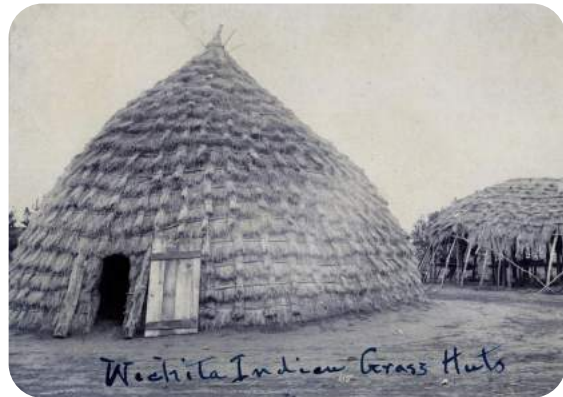 Wichita Indian Grass Huts